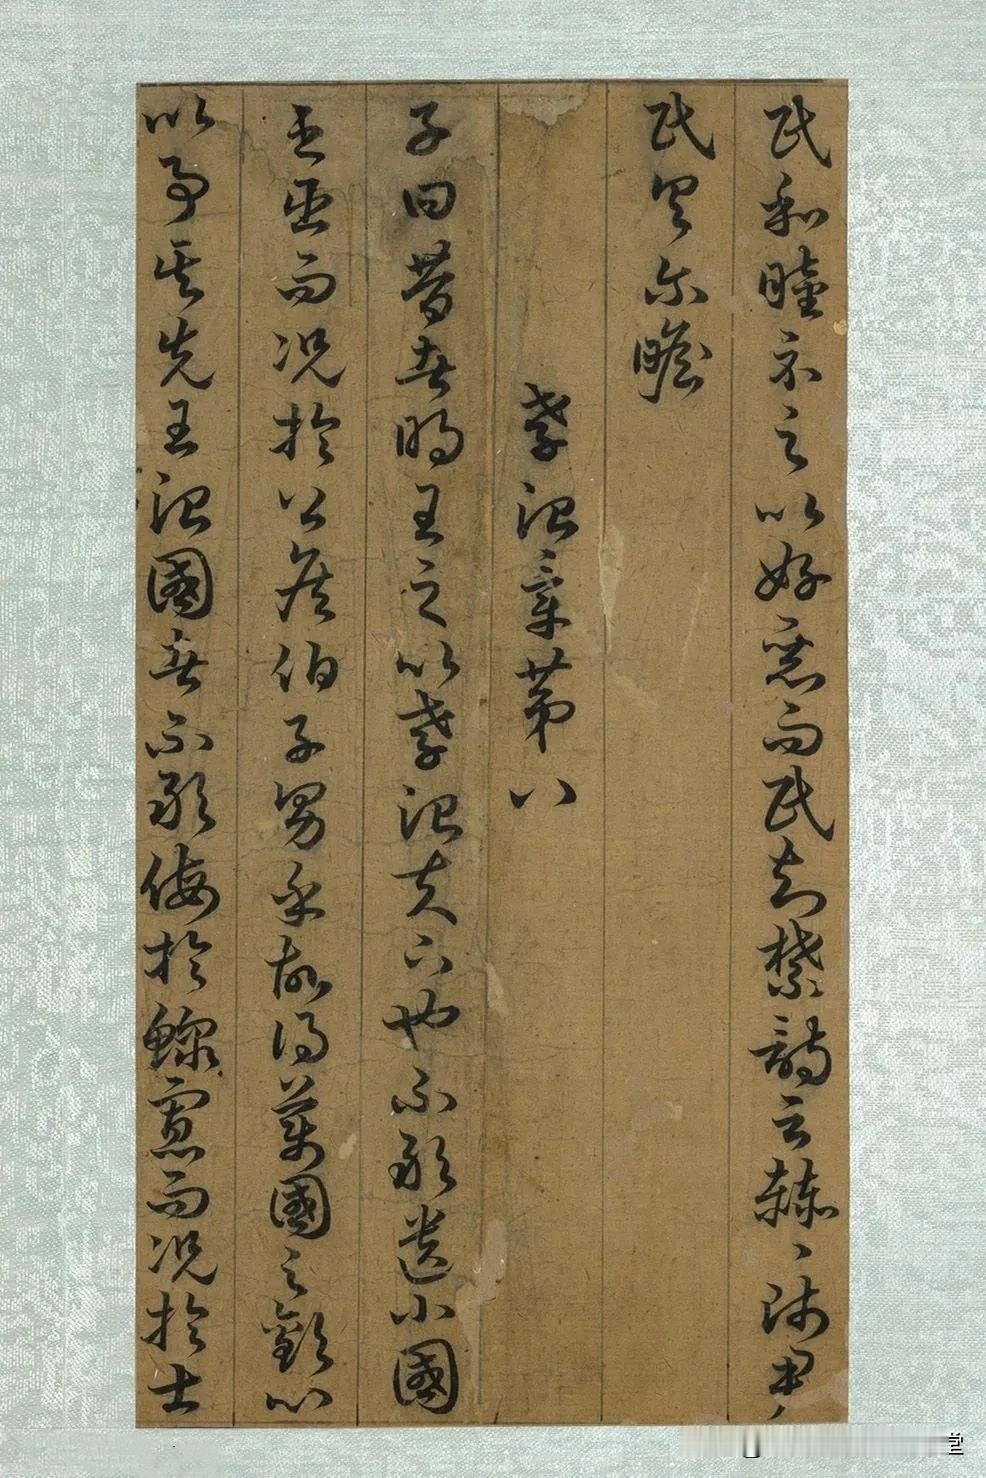 民和睦示之以好惡而民知禁詩云赫〻師尹
民具尒瞻
孝治章苐八
子曰昔者明王之以孝治天下也不敢遺小國
之臣而况於公侯伯子男乎故得萬國之歡心
以事其先王治國者不敢侮於鰥寡而况於士